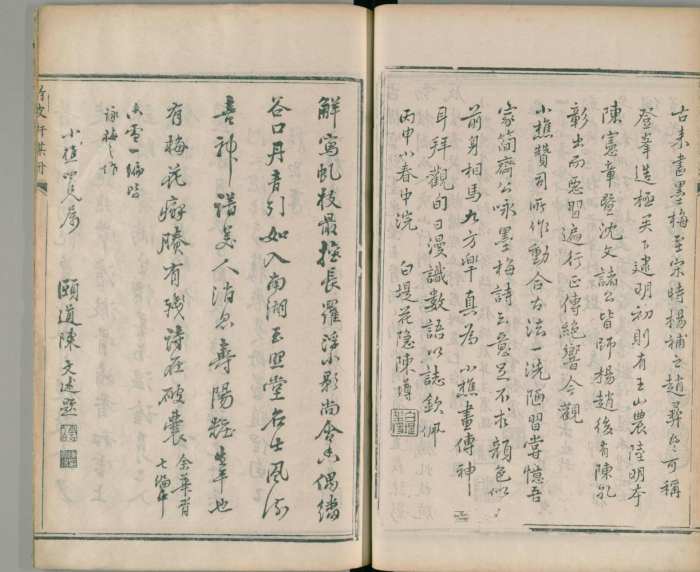 古來畫墨梅至宋時楊補之趙彝可稱
登峯造極矣下逮明初則有王山農陸明本
陳憲章暨沈文諸公皆師楊趙後有陳孔
彰出而惡習遍行正傳絕響今觀
小樵贊司所作動合古法一洗陋習嘗憶吾
家簡齋公咏墨梅詩云意足不求顏色似
前身相馬九方皋真為小樵畫傳神
耳拜觀旬日漫識數語以誌欽佩
丙申小春中浣 白堤花隱陳
寫虬枝最擅長羅浮小影尚含香偶繙
谷口丹青引如入南湖玉照堂名士風流
喜神譜美人消息壽陽妝生平也
有梅花癖賸有殘詩在破囊
香雪一編皆
詠梅之作
小樵四兄屬
頤道陳文述題